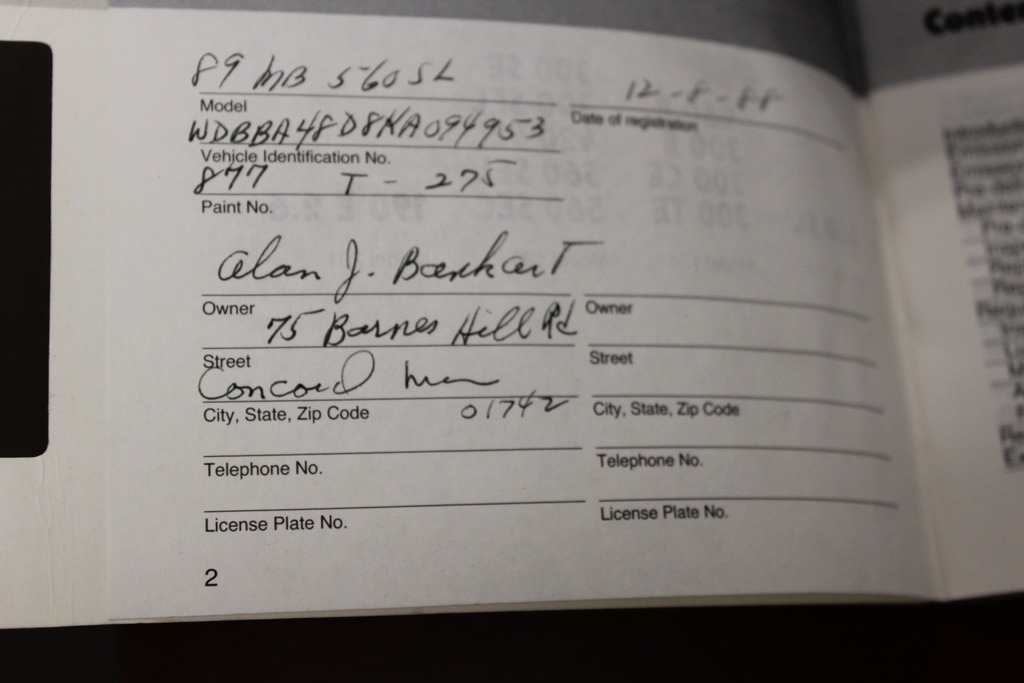 Conte
89 MB 560 SL 12-8-88
Model Date of registration
WDBBA48D8KA094953
Vehicle Identification No.
877 T - 275
Paint No.
Alan J.
Owner Owner
75 Barnes Hill Rd
Street Street
Concord
City, State, Zip Code 01742 City, State, Zip Code
Telephone No. Telephone No.
License Plate No. License Plate No.
2